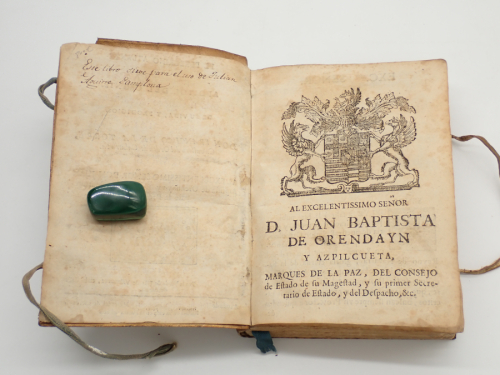 Este libro es para el uso de
AL EXCELENTISSIMO SEÑOR
D. JUAN BAPTISTA
DE ORENDAYN
Y AZPILCUETA,
MARQUES DE LA PAZ, DEL CONSEJO
de Estado de su Magestad, y su primer Secre-
tario de Estado, y del Despacho, &c.